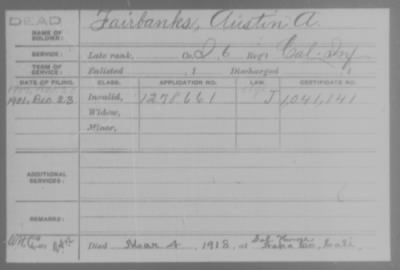 DEAD
NAME OF SOLDIER: Fairbanks, Austin A.
SERVICE: Late rank, Co. D, 6 Reg't Cal. Inf
TERM OF SERVICE: Enlisted , 1 Discharged , 1
DATE OF FILING. CLASS. APPLICATION NO. LAW. CERTIFICATE NO.
1901, Dec 23 Invalid, 1278661 J 1,041,141
Widow,
Minor,
ADDITIONAL SERVICES:
REMARKS:
Died Mar 4, 1918, at Sol. Home Napa Co., Cali.